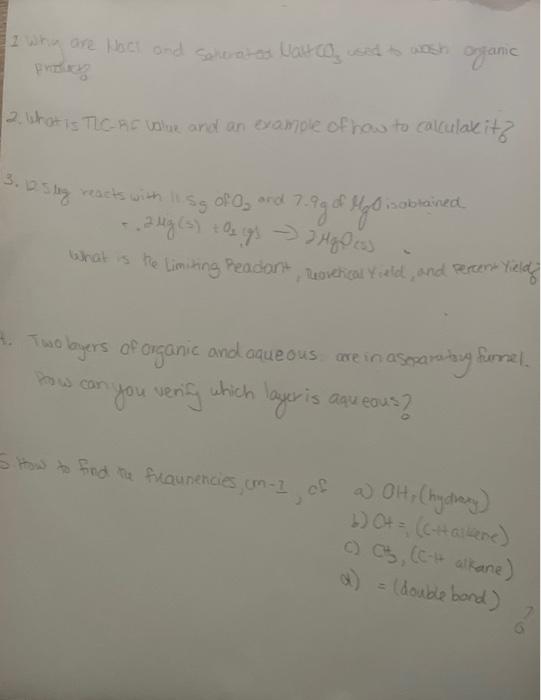 1 Why are NaCl and Saturated NaHCO3 used to wash organic
product?
2. What is TLC-RF value and an example of how to calculate it?
3. 12.5 Mg reacts with 11.5g of O2 and 7.9g of MgO is obtained
2Mg(s) + O2(g) → 2MgO(s)
What is the Limiting Reactant, Theoretical Yield, and Percent Yield?
4. Two layers of organic and aqueous are in a separatory funnel.
How can you verify which layer is aqueous?
5. How to find the frequencies, cm-1, of a) OH, (hydroxy)
b) CH=, (C-H alkene)
c) CH3, (C-H alkane)
d) = (double bond)
?